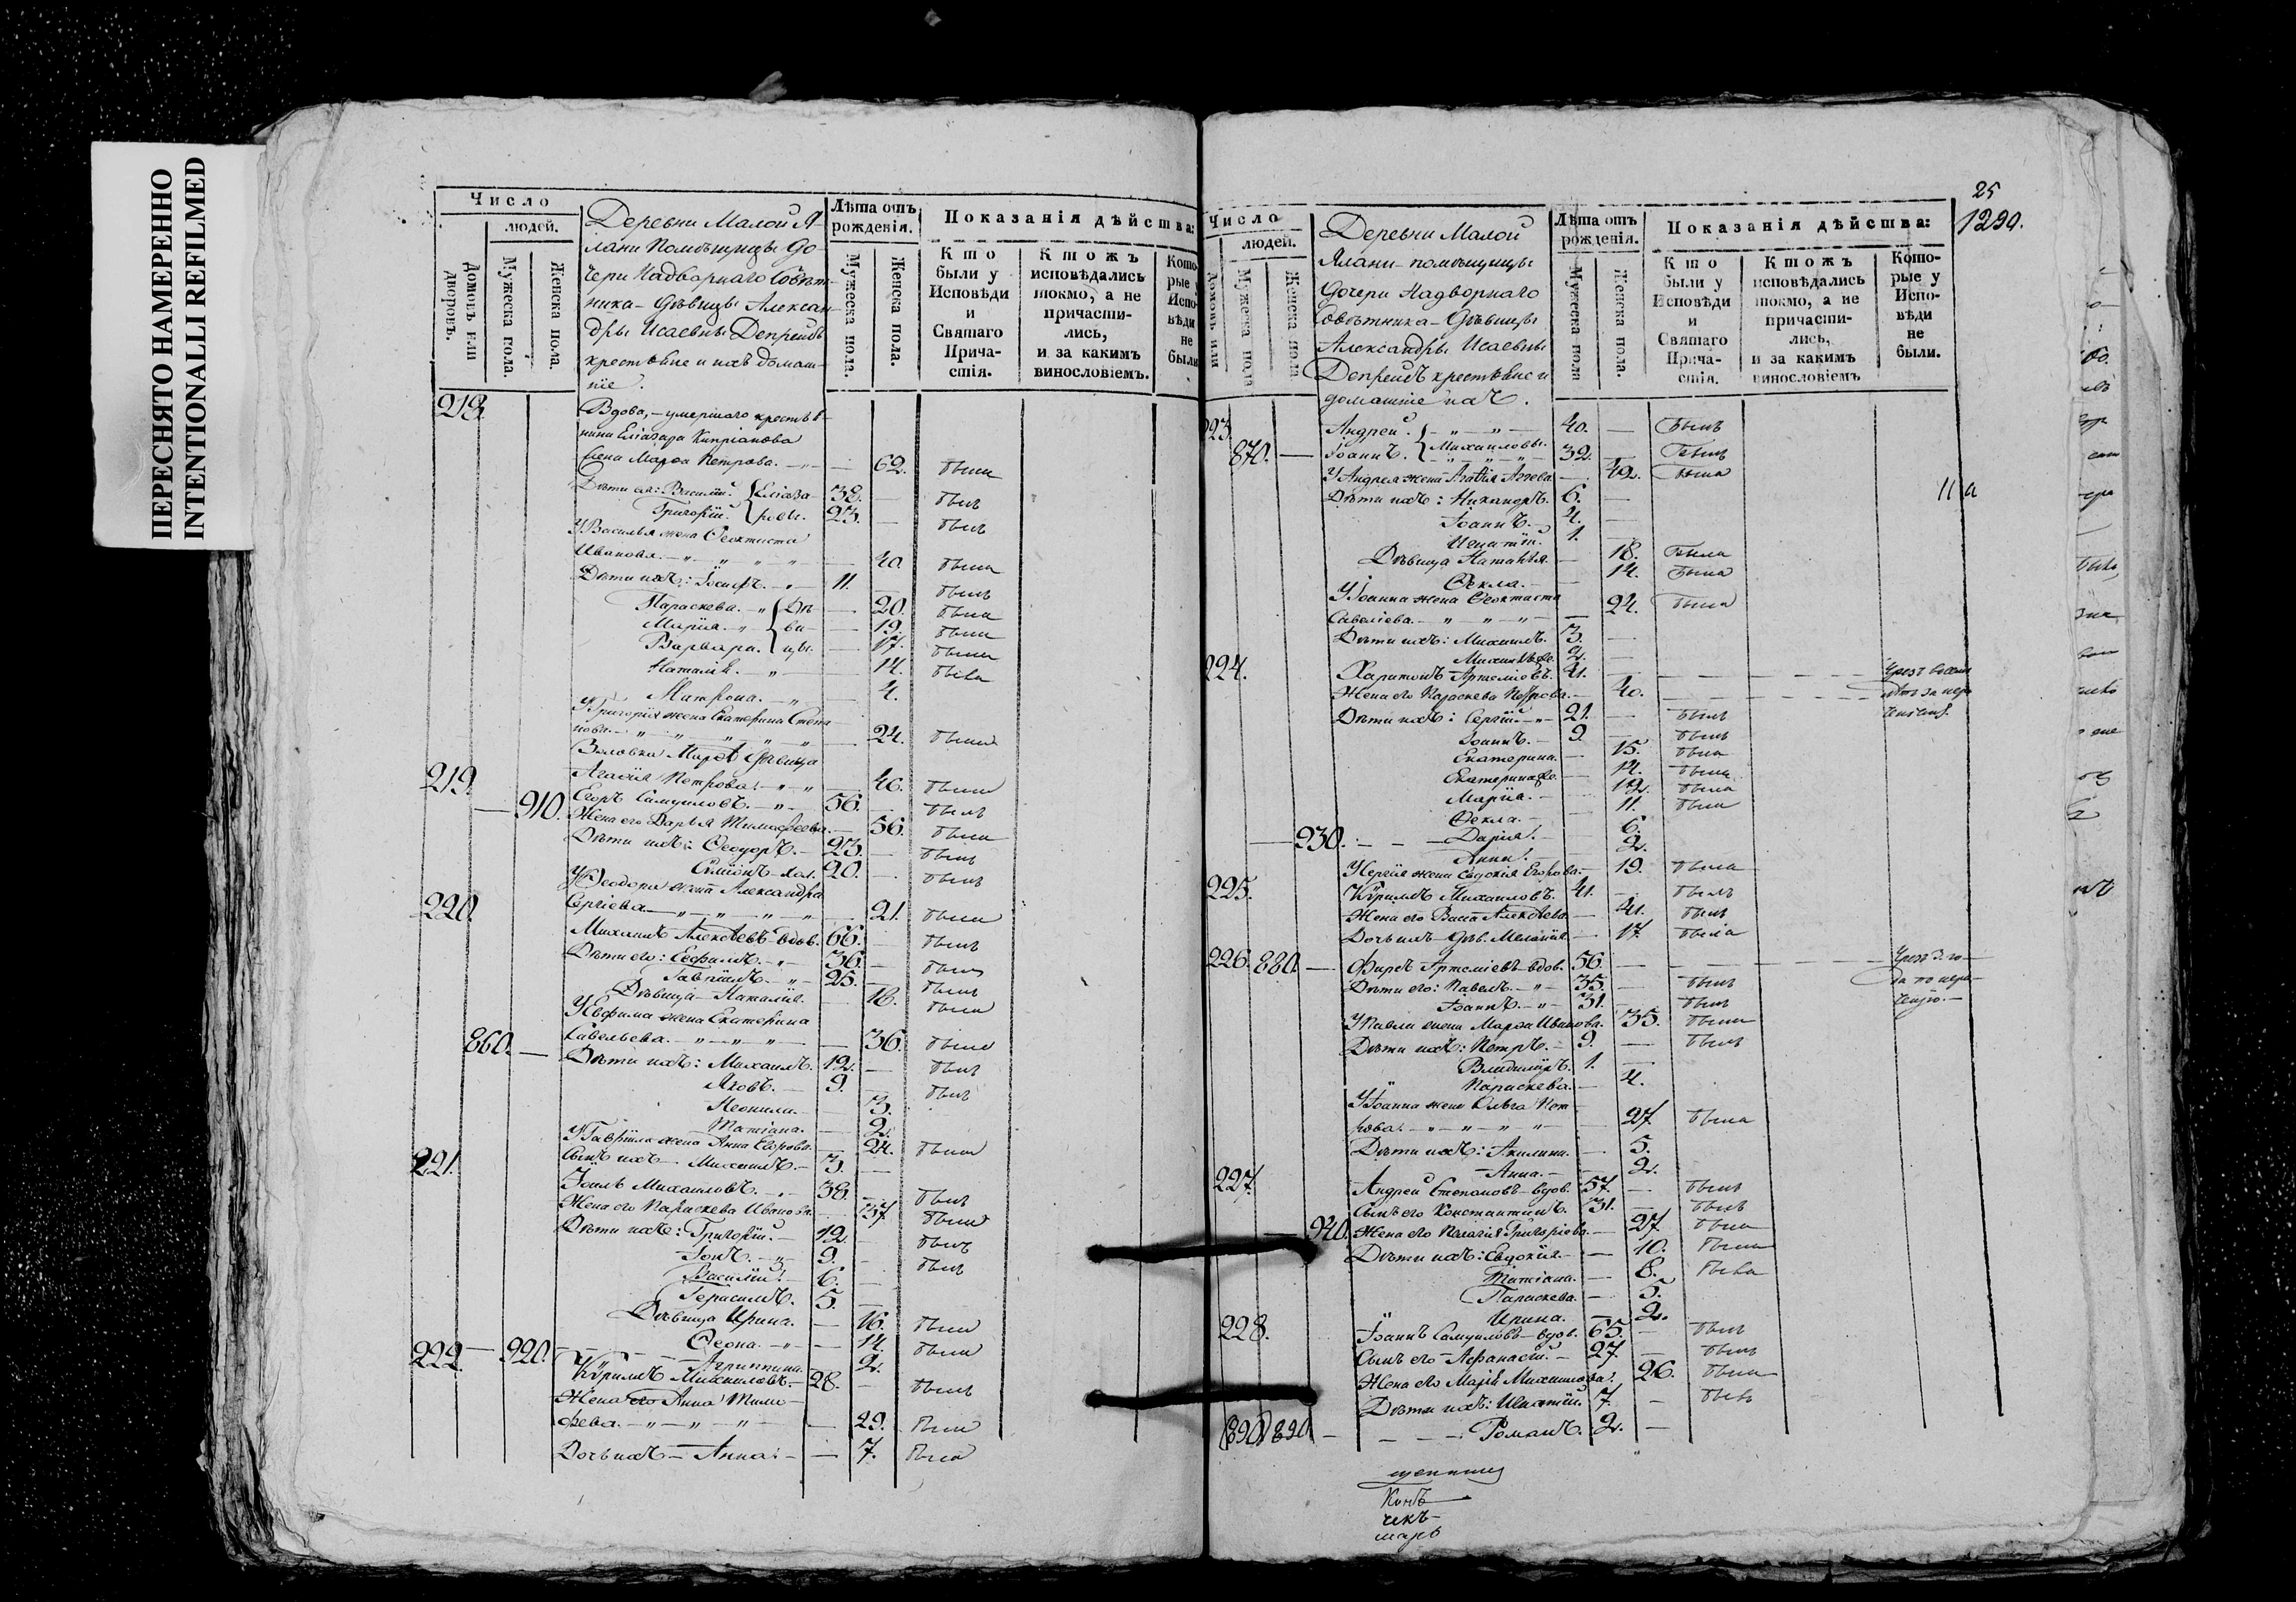 ПЕРЕСНЯТО НАМЕРЕННО
INTENTIONALLI REFILMED
Число
людей.
Домовъ или дворовъ.
Мужеска пола.
Женска пола.
Деревни Малой Я-
лани Помѣщицы до
чери Надворнаго Совѣт-
ника - Дѣвицы Алексан-
дры Исаевны Депрейдъ
крестьяне и ихъ домаш-
ніе.
Лѣта отъ рожденія.
Мужеска пола.
Женска пола.
Показанія дѣйства:
Кто были у Исповѣди и Святаго Прича-стія.
Ктожъ исповѣдались токмо, а не причасти-лись, и за какимъ винословіемъ.
Кото-рые у Испо-вѣди не были
218. Вдова, - умершаго крестья-
нина Еліазара Кипріанова
жена Марѳа Петрова. 62. была
Дѣти ея: Василій. Еліаза- 38. былъ
Григорій. ровы. 23. былъ
У Василья жена Ѳеоктиста
Иванова. 40. была
Дѣти ихъ: Іосифъ. 11. былъ
Параскева. Дѣ- 20. была
Марія. ви- 19. была
Варвара. цы. 17. была
Наталія. 14. была
Матрона. 4.
У Григорія жена Екатерина Степа
нова. 24. была
219. Агаѳія Петрова. 46. была
Егоръ Самуиловъ. 56. былъ
910. Жена его Дарья Тимоѳеева. 56. была
Дѣти ихъ: Ѳеодоръ. 23. былъ
Симіонъ - хол. 20. былъ
У Ѳеодора жена Александра
Сергіева 21. была
220. Михаилъ Алексѣевъ - вдов. 66. былъ
Дѣти его: Евфимъ. 36. былъ
Гавріилъ. 25. былъ
Дѣвица - Наталія. 18. была
У Евфима жена Екатерина
Савельева. 36. была
860. Дѣти ихъ: Михаилъ. 12. былъ
Яковъ. 9. былъ
Неонила. 3.
Татіана. 2.
У Гавріила жена Анна Егорова. 24. была
Сынъ ихъ - Михаилъ. 3.
221. Іоиль Михаиловъ. 38. былъ
Жена его Параскева Иванова. 37 была
Дѣти ихъ: Григорій. 12. былъ
9. былъ
Василій. 6.
Герасимъ. 5.
Дѣвица Ирина. 16. была
14. была
920. Агриппина. 2.
222. Кириллъ Михаиловъ. 28. былъ
Жена его Анна Тимо-
феева. 29. была
Дочь ихъ - Анна. 7. была
25
1290.
Число
людей.
Домовъ или
Мужеска пола
Женска пола
Деревни Малой
Ялани - помѣщицы
дочери Надворнаго
Совѣтника - Дѣвицы
Александры Исаевны
Депрейдъ крестьяне и
домашніе ихъ.
Лѣта отъ рожденія.
Мужеска пола
Женска пола.
Показанія дѣйства:
Кто были у Исповѣди и Святаго Прича-стія.
Ктожъ исповѣдались токмо, а не причасти-лись, и за какимъ винословіемъ
Кото-рые у Испо-вѣди не были.
223. Андрей. 40. Былъ
870. Іоаннъ. Михаиловы. 32. Былъ
У Андрея жена 42. Была
Дѣти ихъ: Никаноръ. 6.
Іоаннъ. 4.
Игнатій. 1.
Дѣвица Наталья. 18. Была
Ѳекла. 14. Была
У Іоанна жена Ѳеоктиста
Савеліева. 24. Была
Дѣти ихъ: Михаилъ. 3.
2.
224. Харитонъ Артеміевъ. 41.
Жена его Параскева Петрова. 40.
Дѣти ихъ: Сергій 21. былъ
Іоаннъ. 9. былъ
Екатерина. 15. была
Екатерина 14. была
Марія. 12. была
Ѳекла. 11. была
230. Дарія. 6.
Анна. 2.
У Сергія жена Евдокія Егорова. 19. была
225. Кириллъ Михаиловъ. 41. былъ
Жена его Васса Алексѣева. 41. былъ
Дочь ихъ - Дѣв. Меланія. 17. была
226. 880. Фирсъ Артеміевъ - вдов. 56.
Дѣти его: Павелъ. 35. былъ
Іоаннъ. 31. былъ
У Павла жена Марѳа Иванова. 35. была
Дѣти ихъ: Петръ. 9. былъ
Владиміръ. 1.
Параскева. 4.
У Іоанна жена Ольга Пет
рова. 27. была
Дѣти ихъ: Акилина. 5.
Анна. 2.
227. Андрей Степановъ - вдов. 57. былъ
Сынъ его Константинъ. 31. былъ
940. Жена его Пелагія Григоріева. 27 была
Дѣти ихъ: Евдокія. 10. была
Татіана. 8. была
Параскева. 5.
Ирина. 2.
228. Іоаннъ Самуиловъ - вдов. 65. былъ
Сынъ его - Аѳанасій. 27. былъ
Жена его Марія Михаилова. 26. была
Дѣти ихъ: Игнатій. 7. былъ
890 890 Романъ. 2.